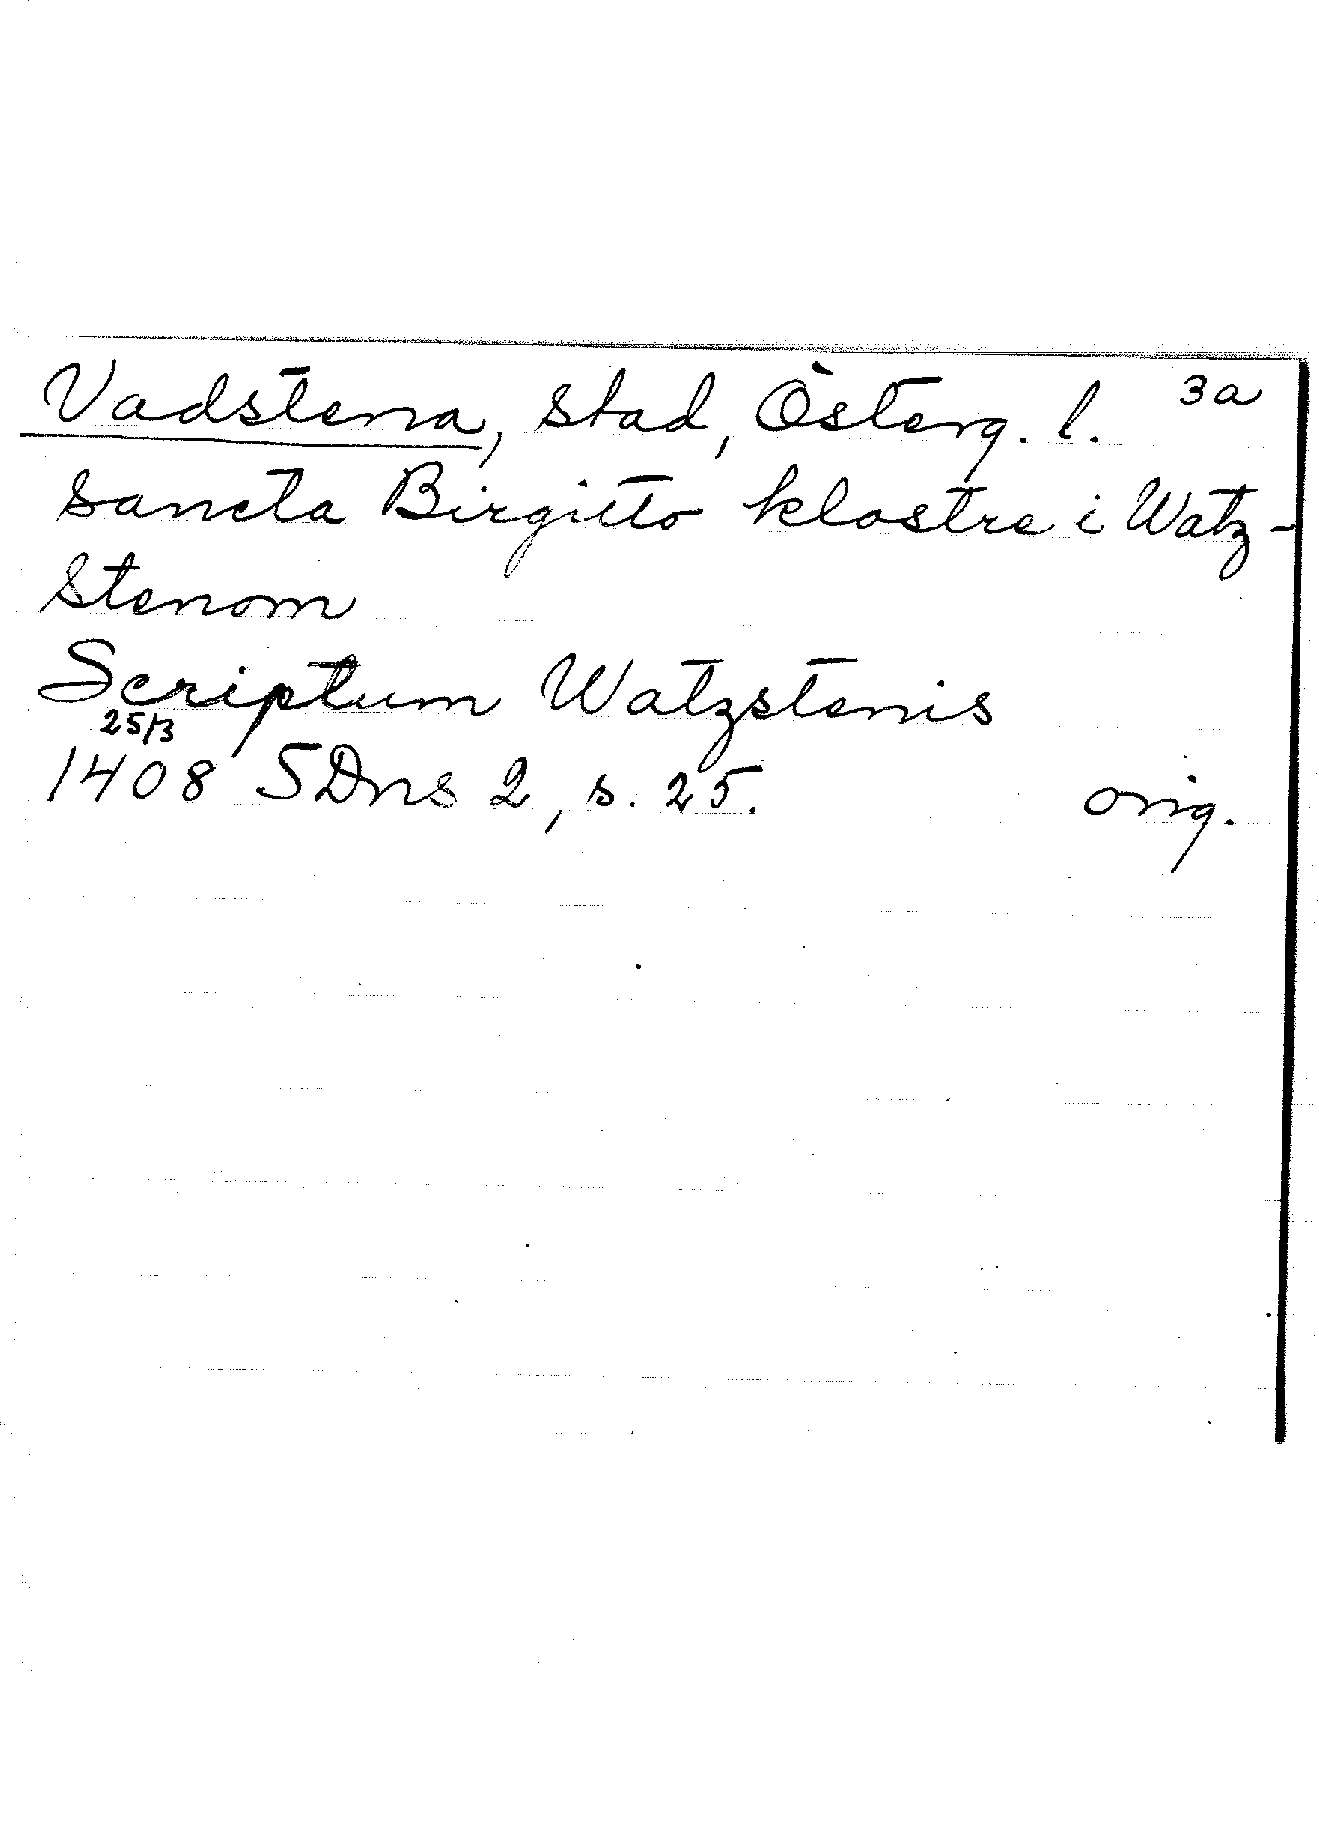 Vadstena, stad, Österg. l. 3a
sancta Birgitto klostre i Watz-
stenom
Scriptum Watzstenis
25/3
1408 SDns 2, s. 25. orig.